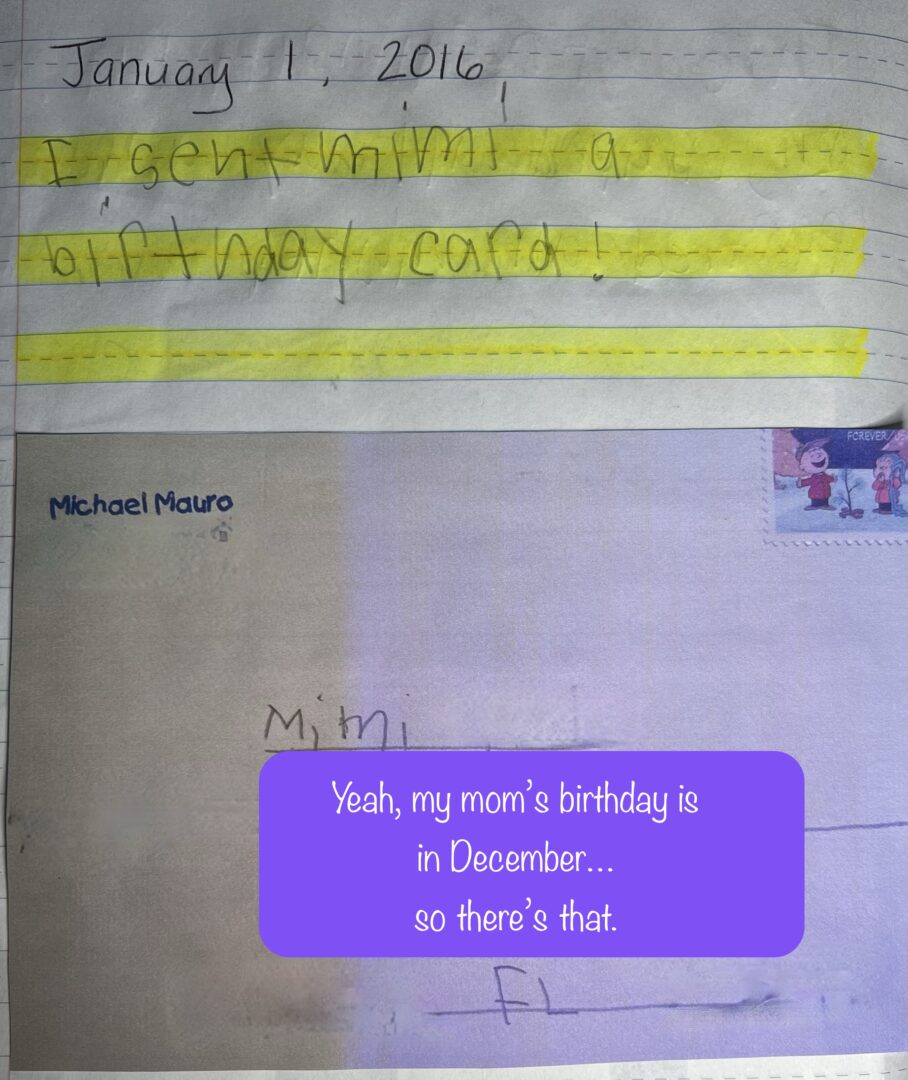 January 1, 2016
I sent mimi a
birthday card!
FOREVER/
Michael Mauro
Mimi
Yeah, my mom’s birthday is
in December...
so there’s that.
FL